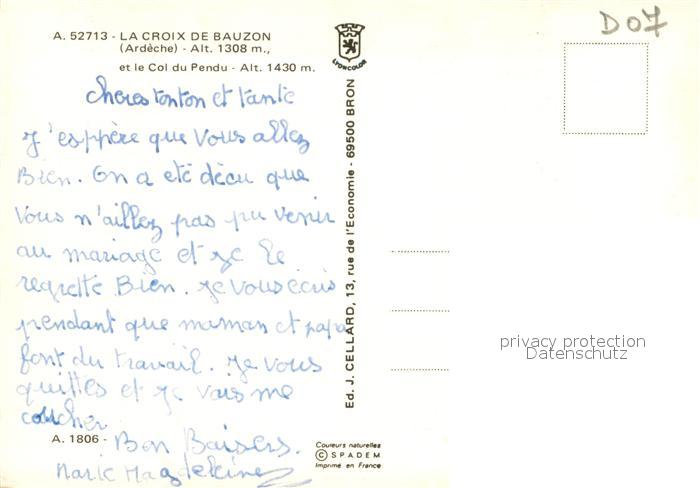 D07
A. 52713 - LA CROIX DE BAUZON
(Ardèche) - Alt. 1308 m.,
et le Col du Pendu - Alt. 1430 m.
LYONCOLOR
cheres tonton et tante
J'esppère que Vous allez
Bien. On a eté décu que
Vous n'aillez pas pu venir
au mariage et je le
regrette Bien. Je Vous écris
pendant que maman et papa
font du travail. Je vous
quittes et je vais me
coucher
A. 1806 - Bon Baisers.
Marie Magdeleine
Ed. J. CELLARD, 13, rue de l'Economie - 69500 BRON
Couleurs naturelles
© SPADEM
Imprimé en France
privacy protection
Datenschutz